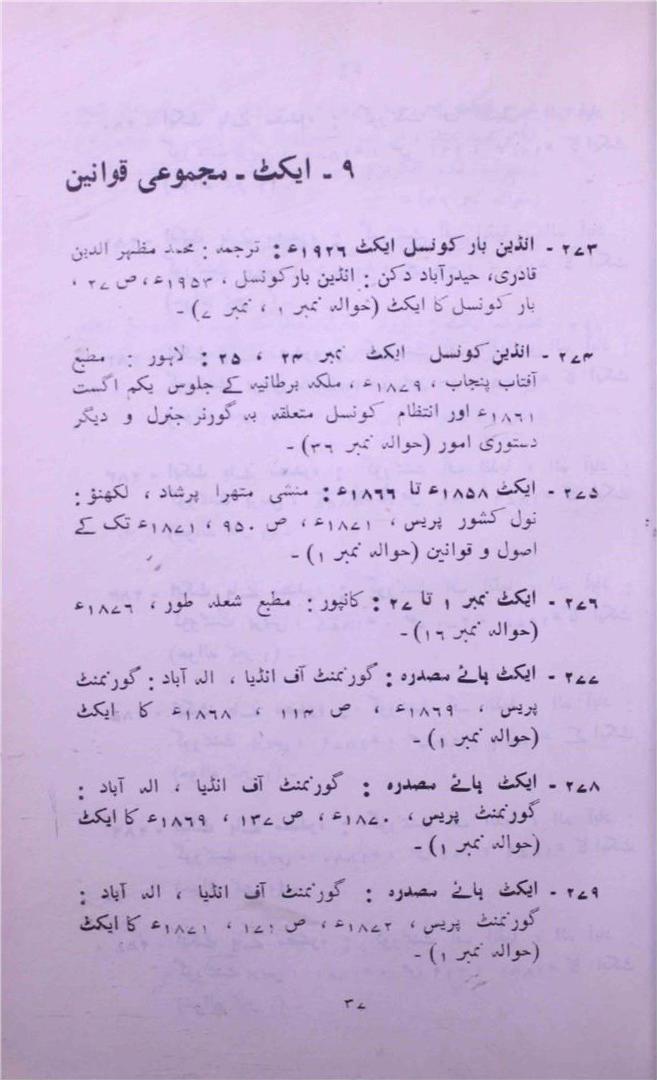 ۹ - ایکٹ - مجموعی قوانین
۲۷۳ - انڈین بار کونسل ایکٹ ۱۹۲۶ء : ترجمہ : محمد مظہر الدین
قادری، حیدرآباد دکن : انڈین بارکونسل ، ۱۹۵۳ء، ص ۲۷ ،
بار کونسل کا ایکٹ (حوالہ نمبر ۱ ، نمبر ۷) -
۲۷۴ - انڈین کونسل ایکٹ نمبر ۲۴ ، ۲۵ : لاہور : مطبع
آفتاب پنجاب ، ۱۸۷۹ء، ملکہ برطانیہ کے جلوس یکم اگست
۱۸۶۱ء اور انتظام کونسل متعلقہ بہ گورنر جنرل و دیگر
دستوری امور (حوالہ نمبر ۳۶) -
۲۷۵ - ایکٹ ۱۸۵۸ء تا ۱۸۶۶ء : منشی متھرا پرشاد ، لکھنؤ :
نول کشور پریس ، ۱۸۷۱ء، ص ۹۵۰ ، ۱۸۷۱ء تک کے
اصول و قوانین (حوالہ نمبر ۱) -
۲۷۶ - ایکٹ نمبر ۱ تا ۲۷ : کانپور : مطبع شعلہ طور ، ۱۸۷۶ء
(حوالہ نمبر ۱۶) -
۲۷۷ - ایکٹ ہائے مصدرہ : گورنمنٹ آف انڈیا ، الہ آباد : گورنمنٹ
پریس ، ۱۸۶۹ء ، ص ۱۱۴ ، ۱۸۶۸ء کا ایکٹ
(حوالہ نمبر ۱) -
۲۷۸ - ایکٹ ہائے مصدرہ : گورنمنٹ آف انڈیا ، الہ آباد :
گورنمنٹ پریس ، ۱۸۷۰ء، ص ۱۳۷ ، ۱۸۶۹ء کا ایکٹ
(حوالہ نمبر ۱) -
۲۷۹ - ایکٹ ہائے مصدرہ : گورنمنٹ آف انڈیا ، الہ آباد :
گورنمنٹ پریس ، ۱۸۷۲ء، ص ۱۷۱ ، ۱۸۷۱ء کا ایکٹ
(حوالہ نمبر ۱) -
۳۷